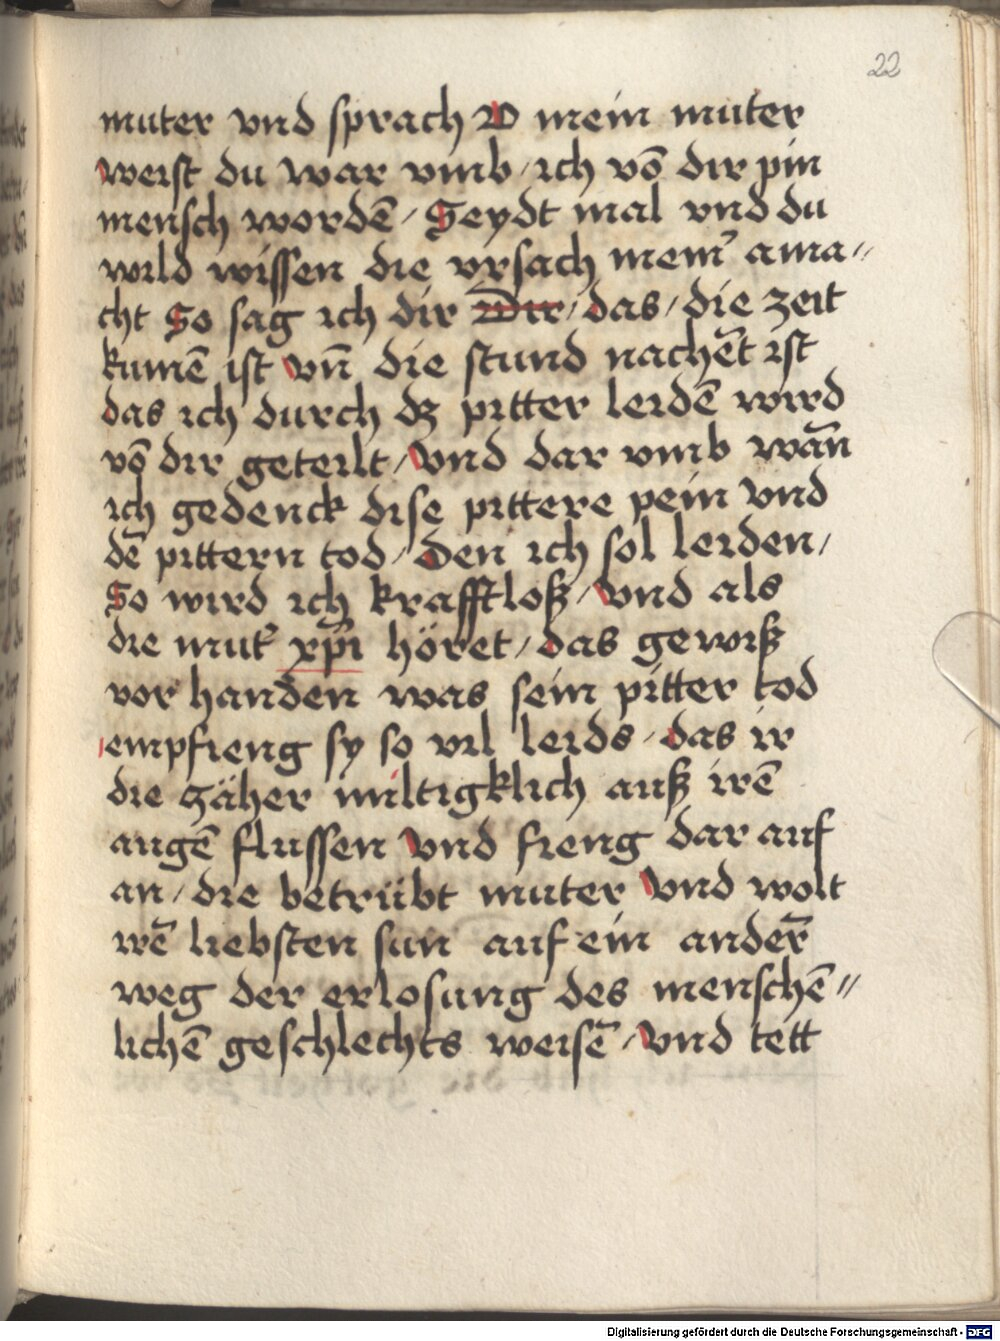 22
muter vnd sprach O mein muter
weist du war vmb / ich vō dir pin
mensch wordē / Seydt mal vnd du
wild wissen die vrsach mein̄ ama〃
cht So sag ich dir Dir / das / die zeit
kumē ist vn̄ die stund nachēt ist
das ich durch dz pitter leidē wird
vō dir geteilt / Vnd dar vmb wān
ich gedenck dise pittere pein vnd
dē pittern tod / Den ich sol leiden /
So wird ich krafftloß / Vnd als
die mut̄ xp̄i höret / das gewiß
vor handen was sein pitter tod
empfieng sy so vil leids / das ir
die zäher miltigklich auß irē
augē flussen Vnd fieng dar auf
an / die betrübt muter Vnd wolt
irē liebsten sun auf ein ander̄
weg der erlosung des menschē〃
lichē geschlechts weisē / Vnd tett
Digitalisierung gefördert durch die Deutsche Forschungsgemeinschaft - DFG